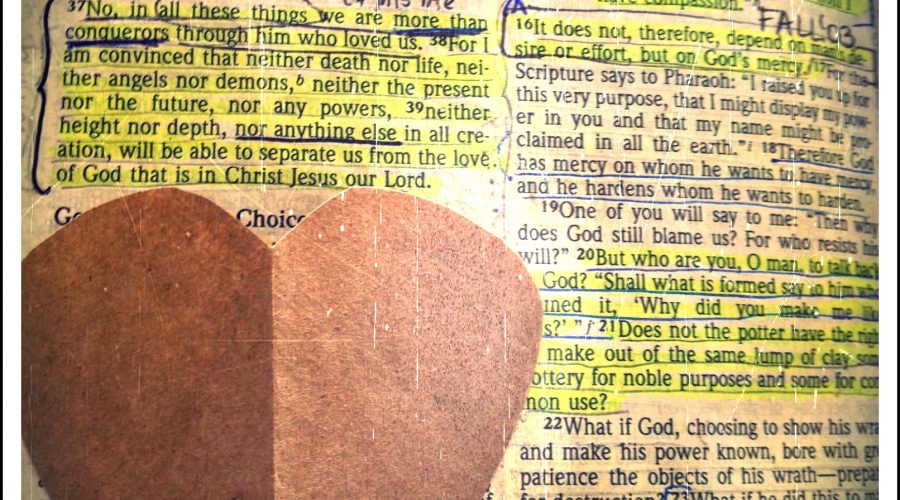 37No, in all these things we are more than
conquerors through him who loved us. 38For I
am convinced that neither death nor life, nei-
ther angels nor demons,b neither the present
nor the future, nor any powers, 39neither
height nor depth, nor anything else in all cre-
ation, will be able to separate us from the love
of God that is in Christ Jesus our Lord.
Choice
have compassion."
FALL '03
16It does not, therefore, depend on man's de-
sire or effort, but on God's mercy. 17For the
Scripture says to Pharaoh: "I raised you up for
this very purpose, that I might display my pow-
er in you and that my name might be pro-
claimed in all the earth."i 18Therefore God
has mercy on whom he wants to have mercy,
and he hardens whom he wants to harden.
19One of you will say to me: "Then why
does God still blame us? For who resists his
will?" 20But who are you, O man, to talk back
God? "Shall what is formed say to him who
med it, 'Why did you make me like
s?' "j 21Does not the potter have the right
make out of the same lump of clay som
ottery for noble purposes and some for com
mon use?
22What if God, choosing to show his wra
and make his power known, bore with gr
patience the objects of his wrath—prepa
for destruction? 23What if he did this to m